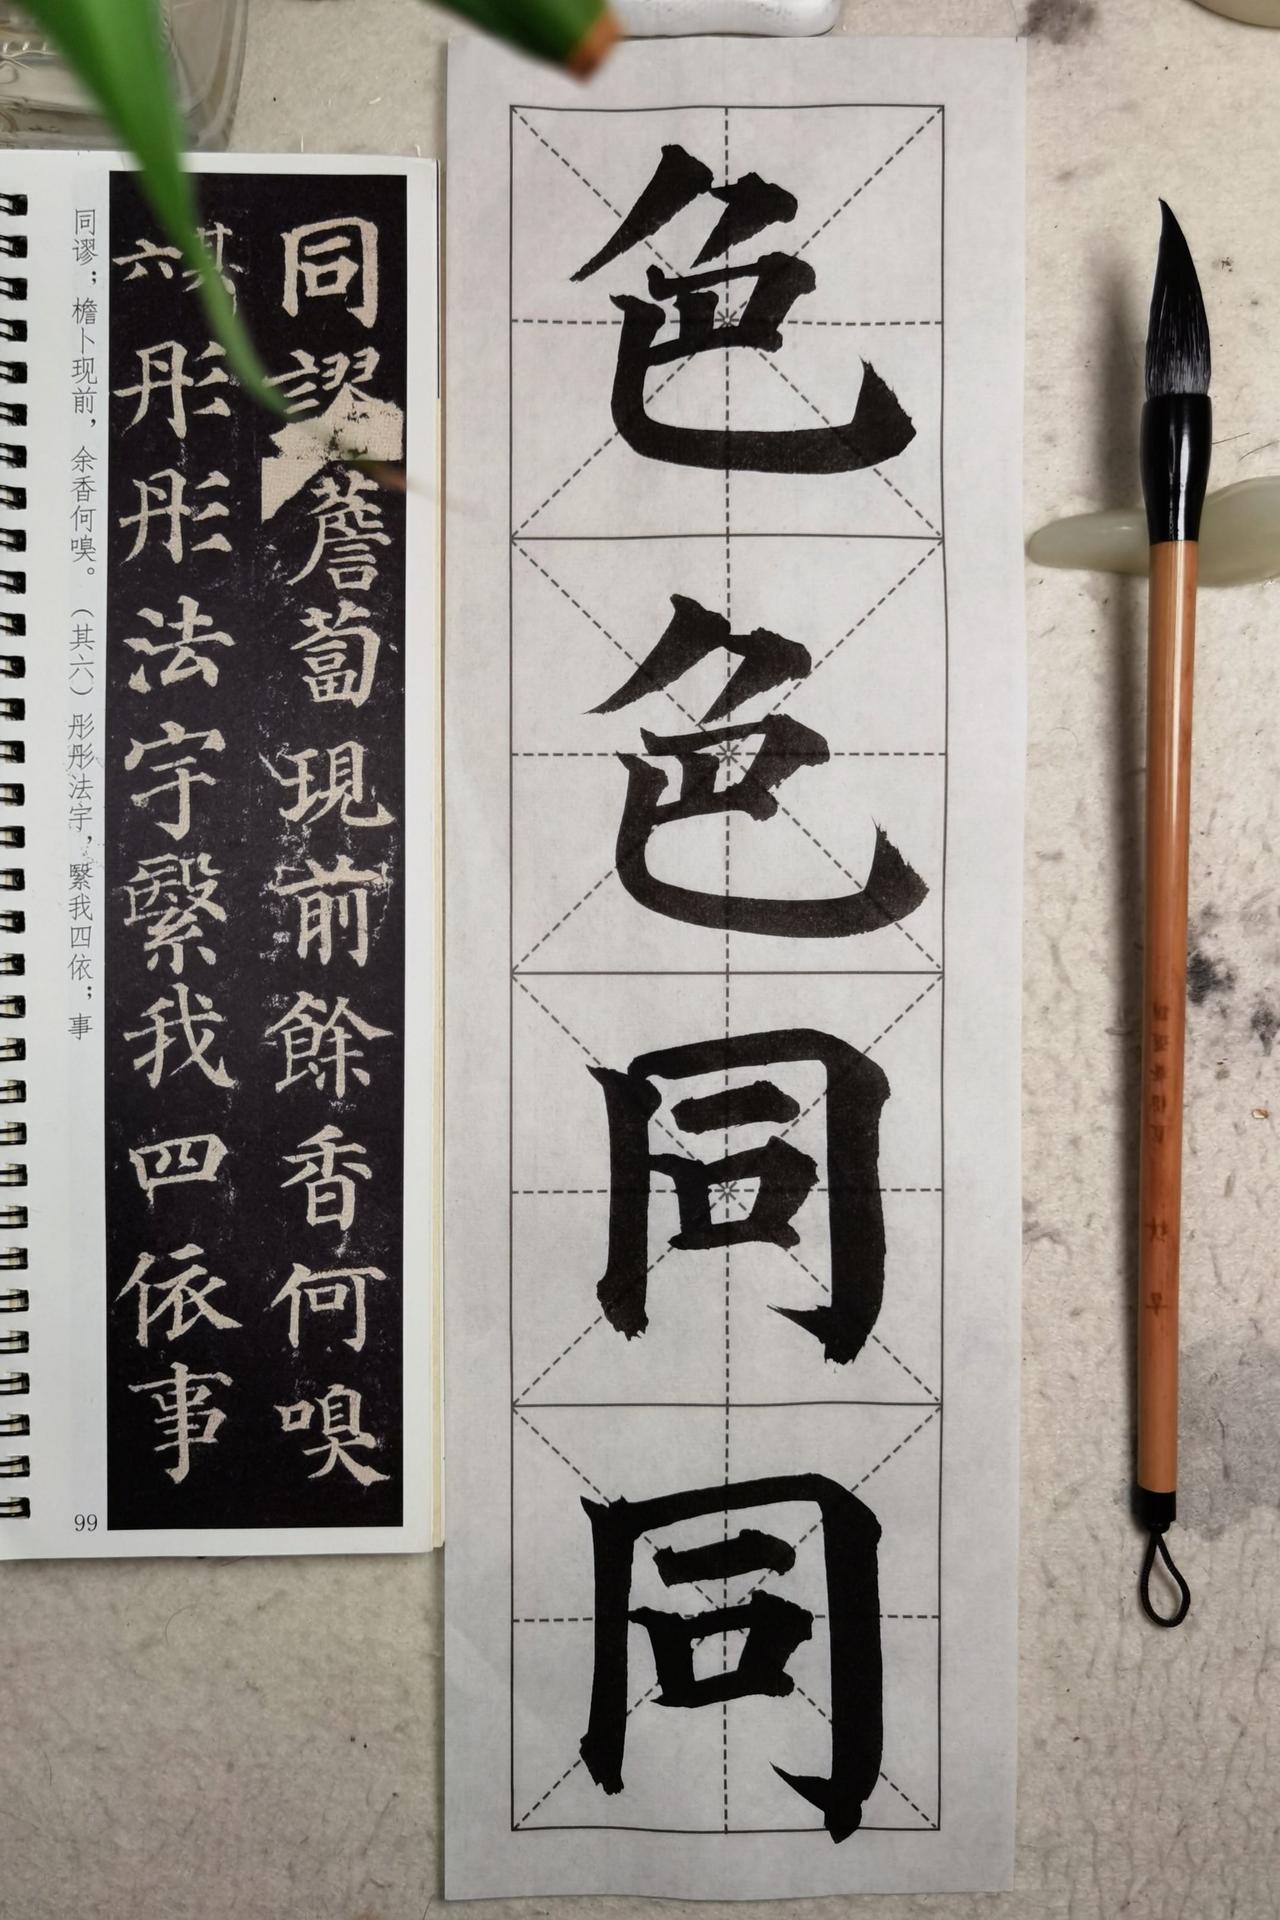 同谬；檐卜现前，余香何嗅。（其六）彤彤法宇，繄我四依；事
同謬薝蔔現前餘香何嗅
其六彤彤法宇繄我四依事
99
色色同同